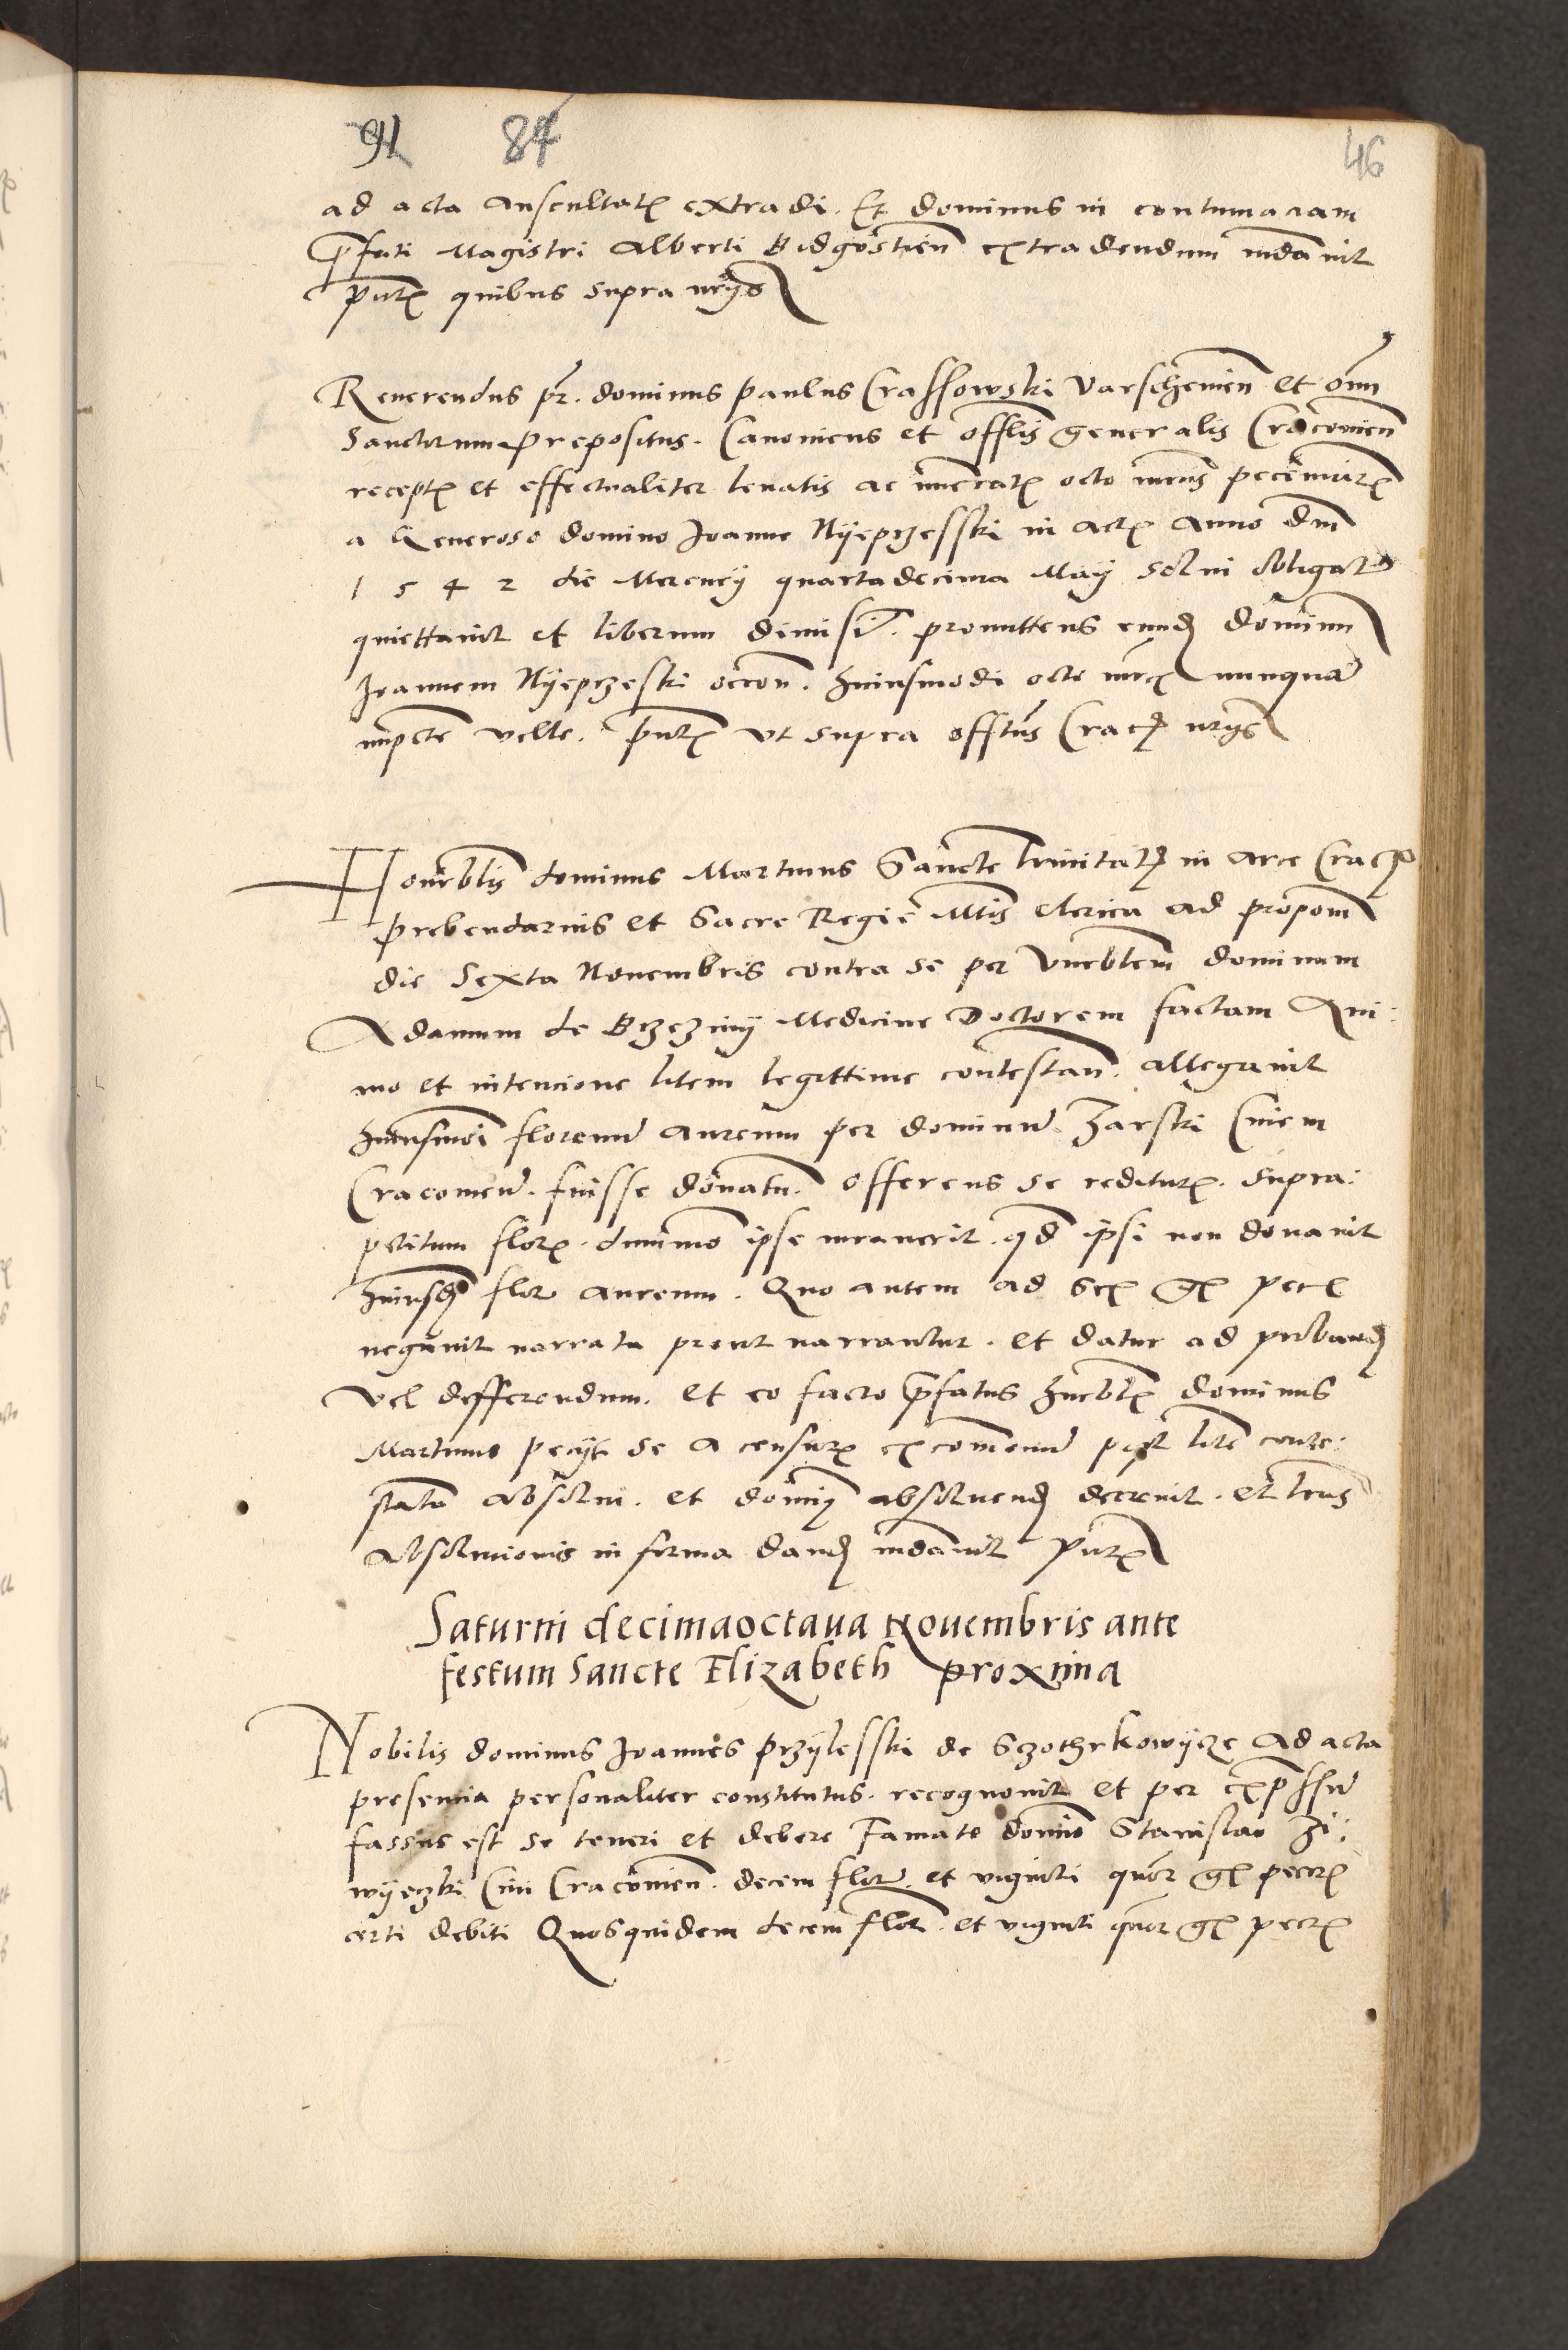 91 84 46
ad acta auscultatꝭ extradi. Et dominus in contumaciam
p̄fati Magistri Alberti Bidgostien̄ extradendum mdāuit
pn̄tꝭ quibus supra nrȳs
Reuerendus pr̄. dominus Paulus Crassowski Varschemien̄ et om̄
Sanctorum Prepositus. Canonicus et offlīs generalis Cracouien̄
receptꝭ et effectualiter leuatis ac nūeratꝭ octo mrcis pecuniarꝭ
a Generoso domino Joanne Nyeprzesski in actꝭ Anno dn̄i
1542 die Mercurij quartadecima Maij solui obligatꝭ
quiettauit et liberum dimisit. promittens eundꝭ dominū
Joannem Nyeprzeski occōn. huiusmodi octo mrcꝭ nunquā
impetē velle. pn̄tꝭ vt supra offtūs Cracꝭ nrȳs
Honorblīs dominus Martinus Sancte Trinitatꝭ in arce Cracꝭ
prebendarius et Sacre Regiē Mtīs clerica ad propōm
die Sexta Nouembris contra se per Venerblem dominum
Adamum de Brzeziny Medicine Doctorem factam Ani:
mo et intencione litem legittime contestan̄. allegauit
huiusmōi florenū aureum per dominū Zarski Ciuem
Cracouien̄. fuisse donatū. offerens se rediturꝭ. supra:
petitum florꝭ. dummō ipse iurauerit. qd̄ ipsi non donauit
huiusdꝭ flor aureum. Quo autem ad sex gꝭ pecꝭ
negauit narrata prout narrantur. et datur ad probandꝭ
vel defferendum. et eo facto p̄fatus honorblꝭ dominus
Martinus pecijt se a censurꝭ excomenū post litē conte:
statā absolui. et dominꝭ absoluendꝭ decreuit. et lrās
absolucionis in forma dandꝭ mdāuit pn̄tꝭ
Saturni decimaoctaua Nouembris ante
festum Sancte Elizabeth proxima
Nobilis dominus Joannes Przylesski de Sczothrkowycze ad acta
presencia personaliter constitutus. recognouit et per exp̄ssū
fassus est se teneri et debere Famato domīo Stanislao Zi:
wyeczki Ciui Cracouien̄. decem flor. et viginti quor gꝭ pecrꝭ
certi debiti Quosquidem decem flor. et viginti quor gꝭ pecrꝭ